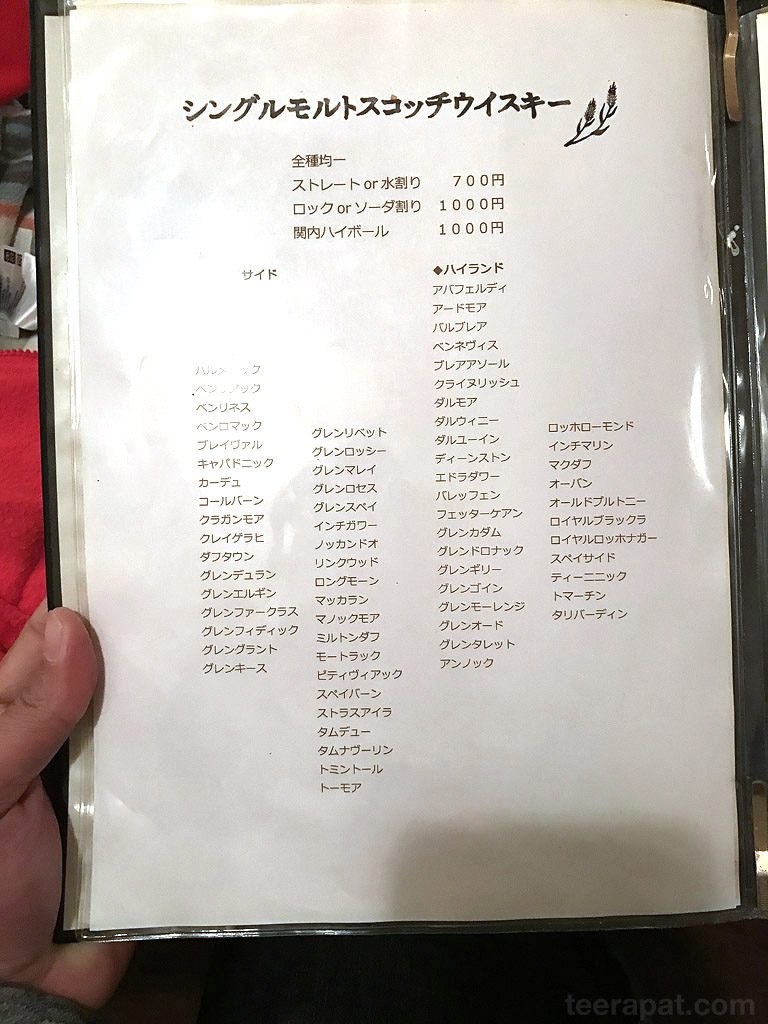 シングルモルトスコッチウイスキー
全種均一
ストレート or 水割り　７００円
ロック or ソーダ割り　１０００円
関内ハイボール　１０００円
サイド
ベンリネス
ベンロマック
ブレイヴァル
キャパドニック
カーデュ
コールバーン
クラガンモア
クレイゲラヒ
ダフタウン
グレンデュラン
グレンエルギン
グレンファークラス
グレンフィディック
グレングラント
グレンキース
グレンリベット
グレンロッシー
グレンマレイ
グレンロセス
グレンスペイ
インチガワー
ノッカンドオ
リンクウッド
ロングモーン
マッカラン
マノックモア
ミルトンダフ
モートラック
ピティヴィアック
スペイバーン
ストラスアイラ
タムデュー
タムナヴーリン
トミントール
トーモア
◆ハイランド
アバフェルディ
アードモア
バルブレア
ベンネヴィス
ブレアアソール
クライヌリッシュ
ダルモア
ダルウィニー
ダルユーイン
ディーンストン
エドラダワー
バレッフェン
フェッターケアン
グレンカダム
グレンドロナック
グレンギリー
グレンゴイン
グレンモーレンジ
グレンオード
グレンタレット
アンノック
ロッホローモンド
インチマリン
マクダフ
オーバン
オールドプルトニー
ロイヤルブラックラ
ロイヤルロッホナガー
スペイサイド
ティーニニック
トマーチン
タリバーディン
teerapat.com